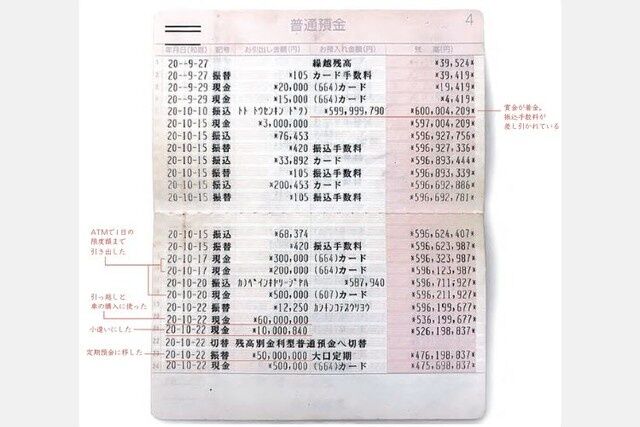 普通預金
4
年月日(和暦) 記号 お引出し金額(円) お預入れ金額(円) 残 高(円)
1 20--9-27 繰越残高 *39,524*
2 20--9-27 振替 *105 カード手数料 *39,419*
3 20--9-29 現金 *20,000 (664)カード *19,419*
4 20--9-29 現金 *15,000 (664)カード *4,419*
5 20-10-10 振込 トト トウセンキン *599,999,790 *600,004,209*
賞金が着金。
振込手数料が
差し引かれている
20-10-15 現金 *3,000,000 *597,004,209*
20-10-15 振込 *76,453 *596,927,756*
20-10-15 振替 *420 振込手数料 *596,927,336*
20-10-15 振込 *33,892 カード *596,893,444*
20-10-15 振替 *105 振込手数料 *596,893,339*
20-10-15 現金 *200,453 カード *596,692,886*
20-10-15 振替 *105 振込手数料 *596,692,781*
20-10-15 振込 *68,374 *596,624,407*
20-10-15 振替 *420 振込手数料 *596,623,987*
ATMで1日の
限度額まで
引き出した
20-10-17 現金 *300,000 (664)カード *596,323,987*
20-10-17 現金 *200,000 (664)カード *596,123,987*
20-10-20 振込 *587,940 *596,711,927*
20-10-20 現金 *500,000 (607)カード *596,211,927*
引っ越しと
車の購入に使った
20-10-22 振替 *12,250 *596,199,677*
20-10-22 現金 *60,000,000 *536,199,677*
小遣いにした
20-10-22 現金 *10,000,840 *526,198,837*
20-10-22 切替 残高別金利型普通預金へ切替
定期預金に移した
23 20-10-22 振替 *50,000,000 大口定期 *476,198,837*
24 20-10-22 現金 *500,000 (664)カード *475,698,837*